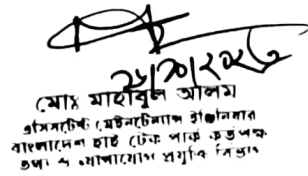 ২৮/১০/২০২৫
মোঃ মাহাবুল আলম
এসিসটেন্ট মেইনটেন্যান্স ইঞ্জিনিয়ার
বাংলাদেশ হাই টেক পার্ক কর্তৃপক্ষ
তথ্য ও যোগাযোগ প্রযুক্তি বিভাগ